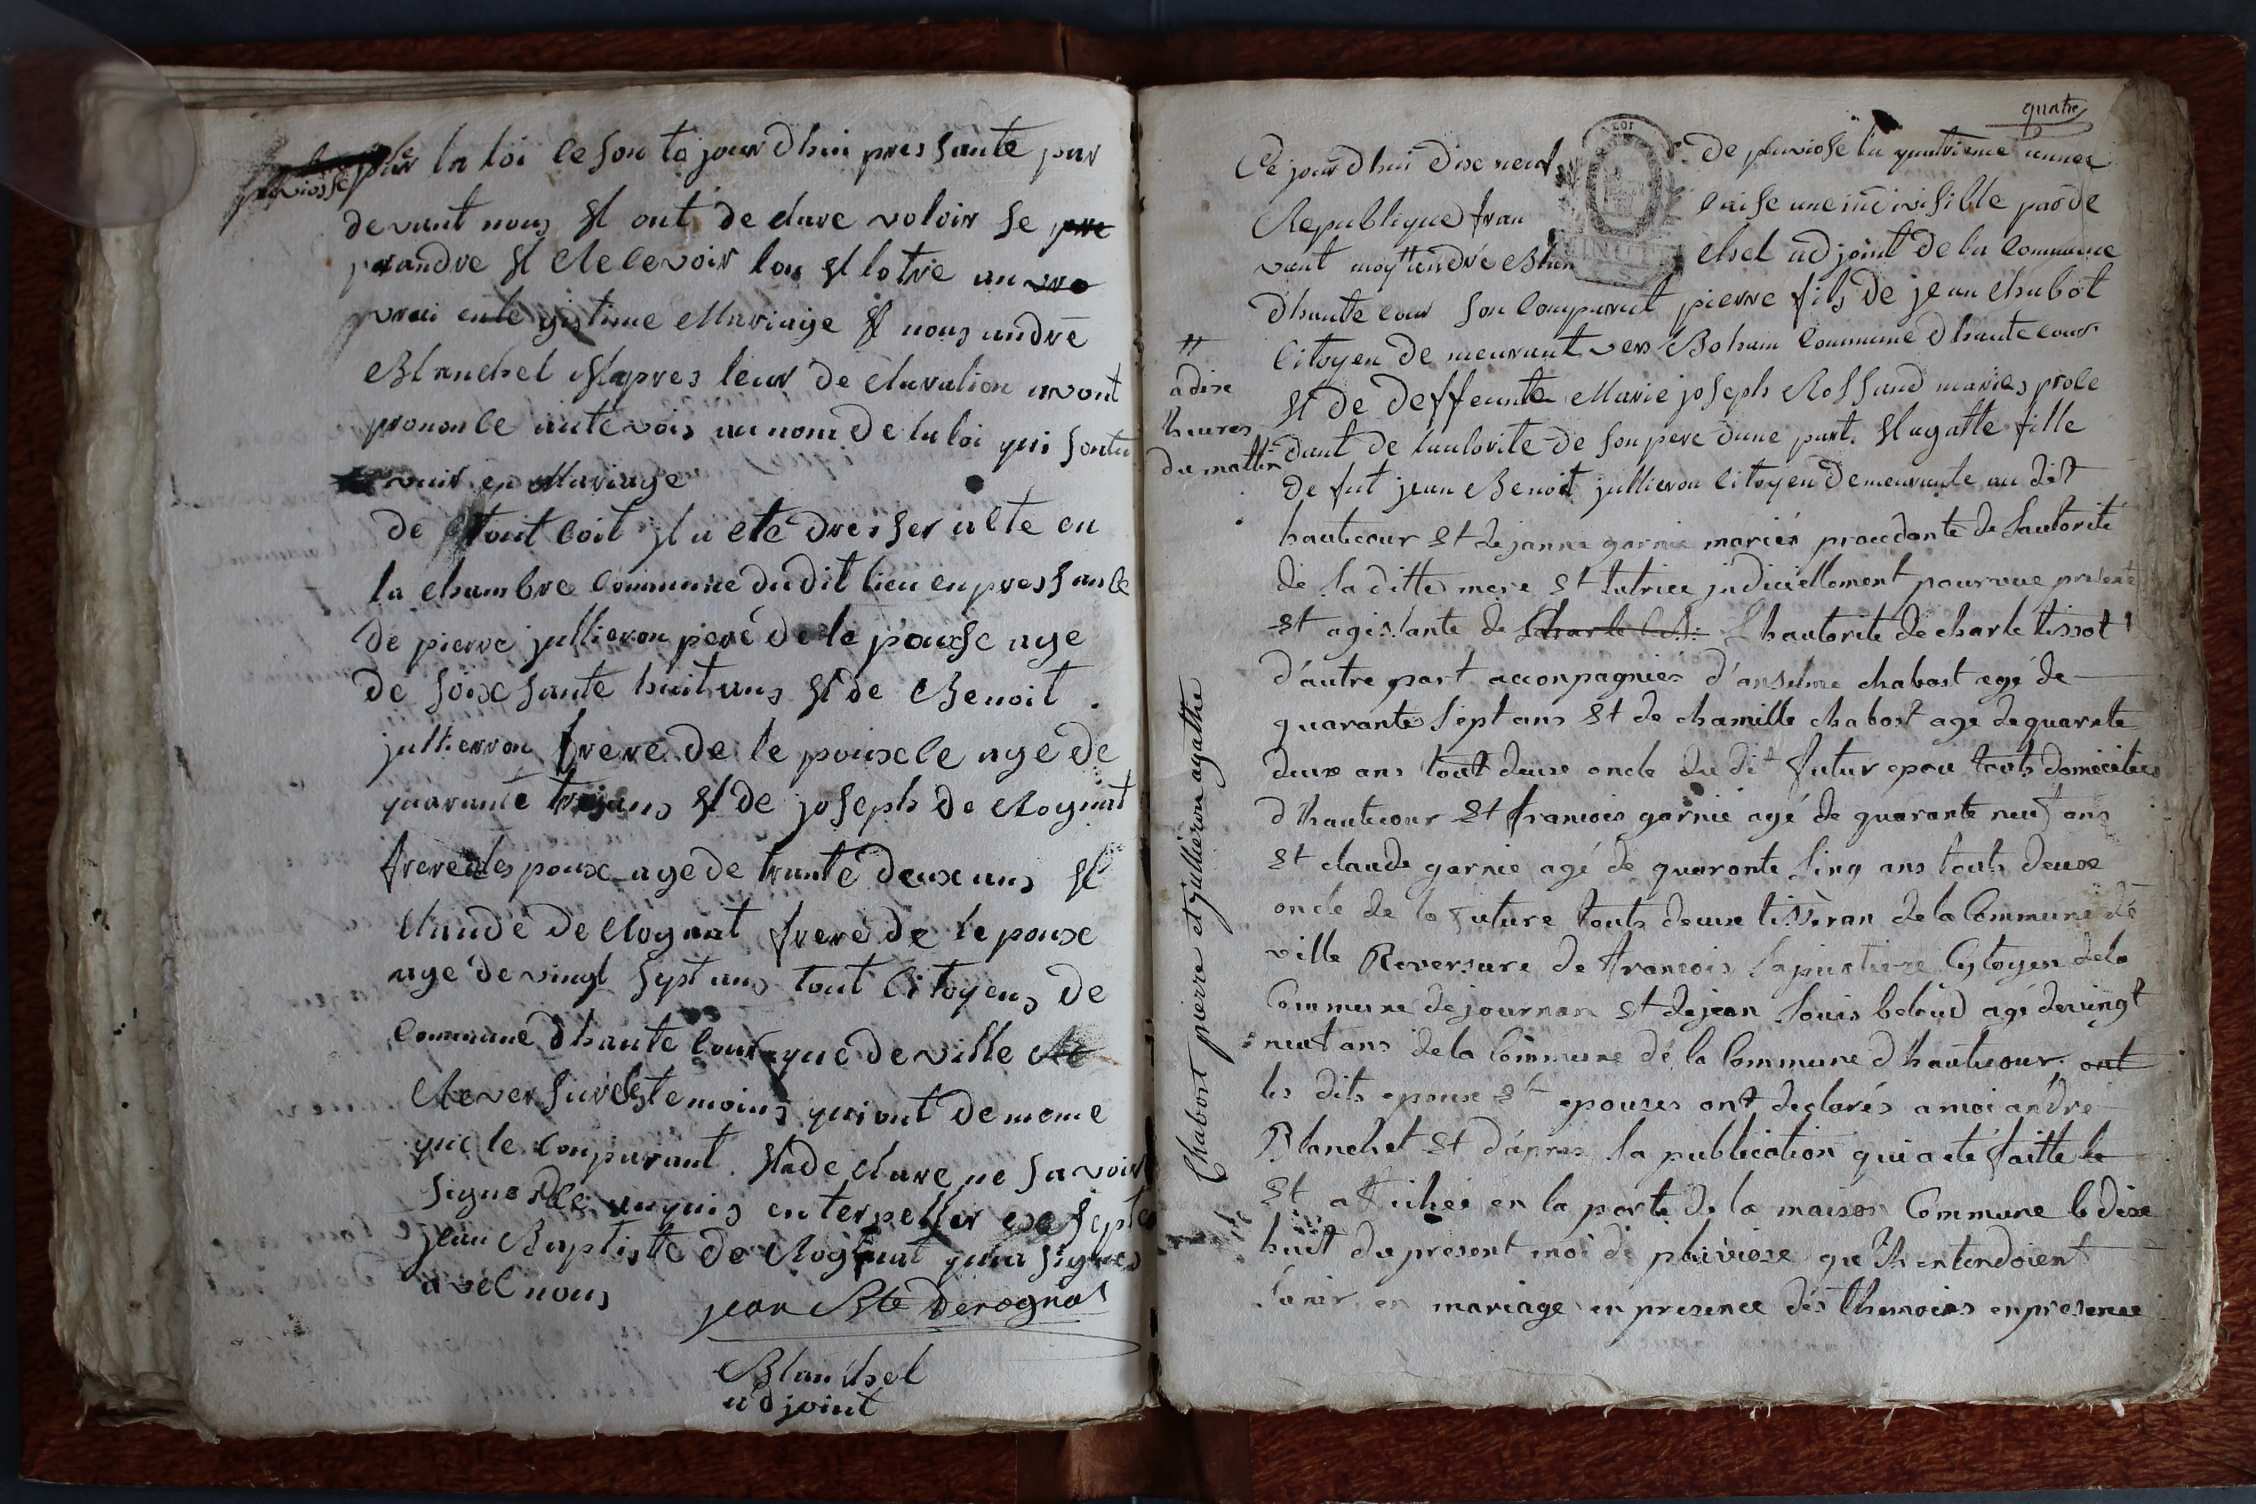 pluviosse par la loi ce son te jour dhui pres sante par
devant nous st ont de clare voloir se pre
prandre st Recevoir lon st lotre un vre
vrai en le gistime Mariage st nous andré
Blanchet st apres leur de claration avont
prononce aute vois au nom de la loi qui sont u
unis en Mariage
de tout coit st a ete dresser acte en
la chambre commune dudit lieu en pressance
de pierre jullieron pere de le pouse age
de soixsante huit ans st de Benoit
jullierron frere de le pouxce age de
quarante trois ans st de joseph de Rognat
frere de les poux age de trante deux ans st
Claude de Rognat frere de le poux
age de vingt sept ans tout Citoyens de
commune dhaute cour que de ville Re
Reversure les temoins qui ont de meme
que le conparant st de clare ne savoir
signer de ce unquis enterpeller exsepter
jean Baptiste de Rognat qui a signes
avec nous
jean Bte Derognat
Blanchet
adjoint
quatre
Ce jour dhui dixe neuf de pluviosse la quatrieme annee
Republique fran caise une indivisible par de
vant moy andré Blan chet adjoint de la commune
dhaute cour son comparut pierre fils de jean chabot
citoyen de meurant vers Bohan commune dhaute cour
st de deffeunte Marie joseph Rossand maries proce
dant de lautorite de son pere dune part. st agatte fille
de fut jean Benoit jullieron citoyen demeurante au dit
hautecour st de janne garnie mariés procedante de lautorité
de la ditte mere st tutrice judiciellement pourvue presente
st agissante de l'hautorite de charle tissot
d'autre part acconpagniés d'anselme chabost agé de
quarante sept ans st de chamille chabost age de quarnte
deux ans tout deux oncle du dit futur epou touts domiciliés
d'hautecour st francois garnie agé de quarante neuf ans
st claude garnie agé de quaronte sinq ans touts deux
oncle de la future touts deux tisseran de la Commune de
ville Reversure de francois lapierre Cytoyen de la
Commune de journan st de jean louis beloud agé de vingt
neuf ans de la Commune de la Commune d'hautecour ont
les dits epoux st epouzes ont declarés a moi andré
Blanchet st d'apres la publication qui a eté faitte le
st affichée en la porte de la maison Commune le dixe
huit du present moi de pluviose que ils entendoient
s'unir en mariage en presence des themoins en presence
#
a dixe
heures
du mattin
Chabost pierre et jullieron agathe